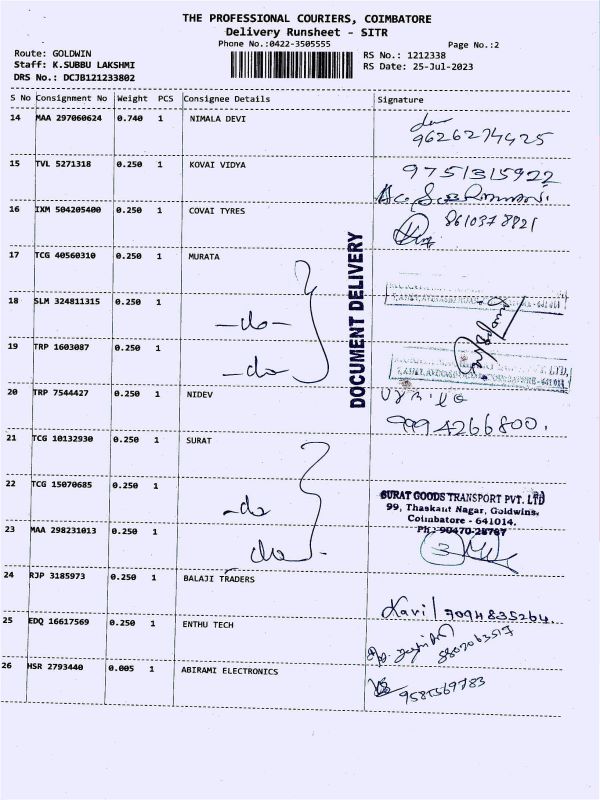 THE PROFESSIONAL COURIERS, COIMBATORE
Delivery Runsheet - SITR
Phone No.:0422-3505555
Page No.:2
Route: GOLDWIN
RS No.: 1212338
Staff: K.SUBBU LAKSHMI
RS Date: 25-Jul-2023
DRS No.: DCJB121233802
S No Consignment No Weight PCS Consignee Details Signature
14 MAA 297060624 0.740 1 NIMALA DEVI
9626274425
15 TVL 5271318 0.250 1 KOVAI VIDYA
9751315922
16 IXM 504205400 0.250 1 COVAI TYRES
8610378821
17 TCG 40560310 0.250 1 MURATA
DOCUMENT DELIVERY
18 SLM 324811315 0.250 1 -do-
19 TRP 1603087 0.250 1 -do-
20 TRP 7544427 0.250 1 NIDEV
9994266800.
21 TCG 10132930 0.250 1 SURAT
22 TCG 15070685 0.250 1 -do
SURAT GOODS TRANSPORT PVT. LTD
99, Thaskant Nagar, Goldwins,
Coimbatore - 641014.
23 MAA 298231013 0.250 1 do
3
24 RJP 3185973 0.250 1 BALAJI TRADERS
Ravi 7094835264.
25 EDQ 16617569 0.250 1 ENTHU TECH
26 HSR 2793440 0.005 1 ABIRAMI ELECTRONICS